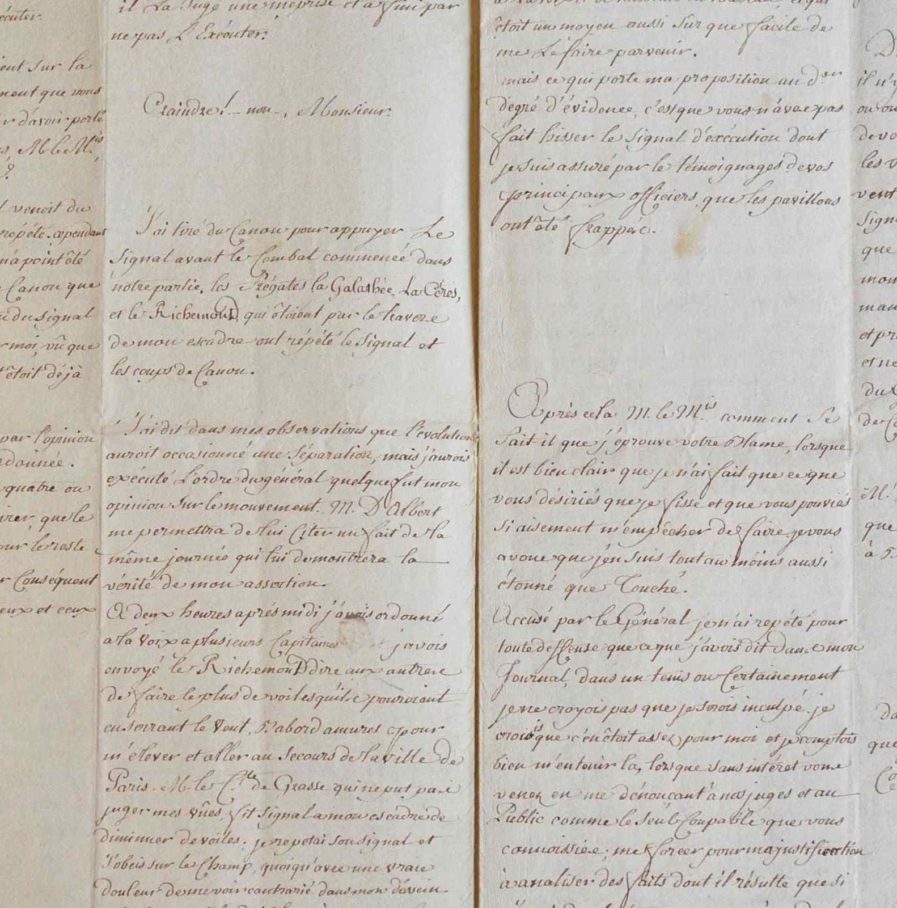 écuter.
ient sur la
ment que vous
r davoir porté
s, M. le M.is
?
l venoit du
répété cependant
n'a point été
Canon que
du signal
r moi, vû que
étoit déjà
par l'opinion
donnée.
quatre ou
irer, que le
our le reste
r Conséquent
eux et ceux
il La jugé une méprise et a fini par
ne pas L'Exécuter.
Craindre!... non..., Monsieur.
J'ai tiré du Canon pour appuyer Le
Signal avant le Combat commencé dans
notre partie, les frégates la Galathée, La Cérès,
et le Richemond qui étoient par le travers
de mon escadre ont répété le signal et
les coups de Canon.
J'ai dit dans mes observations que l'évolution
auroit occasionné une séparation, mais j'aurois
exécuté l'ordre du général quelque fut mon
opinion sur le mouvement. M. D'Albert
me permettra de lui Citer un fait de la
même journée qui lui demontrera la
vérité de mon assertion.
A deux heures après midi j'avois ordonné
a la voix a plusieurs Capitaines j'avois
envoyé le Richemond dire aux autres
de faire le plus de voiles qu'ils pourroient
en serrant le vent, pour
m'élever et aller au Secours de la ville de
Paris. M. le C.te de Grasse qui ne put pas
juger mes vûes, fit signal a mon escadre de
diminuer de voiles. je repetai son signal et
J'obeis sur le Champ, quoiqu'avec une vraie
douleur de me voir dans mon dessein.
étoit un moyen aussi sûr que facile de
me le faire parvenir.
mais ce qui porte ma proposition au d.er
degré d'évidence, c'est que vous n'avez pas
fait hisser le signal d'exécution dont
je suis assuré par le témoignages de vos
principaux officiers, que les pavillons
ont été frappés.
Après cela M. le M.is comment se
fait-il que j'éprouve votre blame, lorsque
il est bien clair que je n'ai fait que ce que
vous désiriés que je fisse et que vous pouviés
si aisement m'empêcher de faire, je vous
avoue que j'en suis tout au moins aussi
étonné que Touché.
Accusé par le Général je n'ai repété pour
toute deffense que ce que j'avois dit dans mon
Journal, dans un tems ou Certainement
je ne croyois pas que je serois inculpé. je
crois que c'en étoit assez pour moi et je comptois
bien m'en tenir la, lorsque sans intérest vous
venez en me dénonçant a nos juges et au
Public comme le seul Coupable que vous
connoissiez, me forcer pour ma justification
à analiser des faits dont il résulte que si
il n'y
ou ou
devo
les v
vent
Sign
que
mou
man
et pr
et ne
du
de
M.
que
à
Da
que